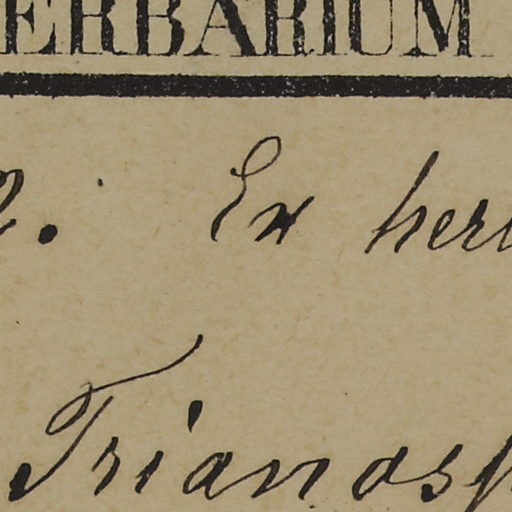 ERBARIUM
2. Ex her
Trianos